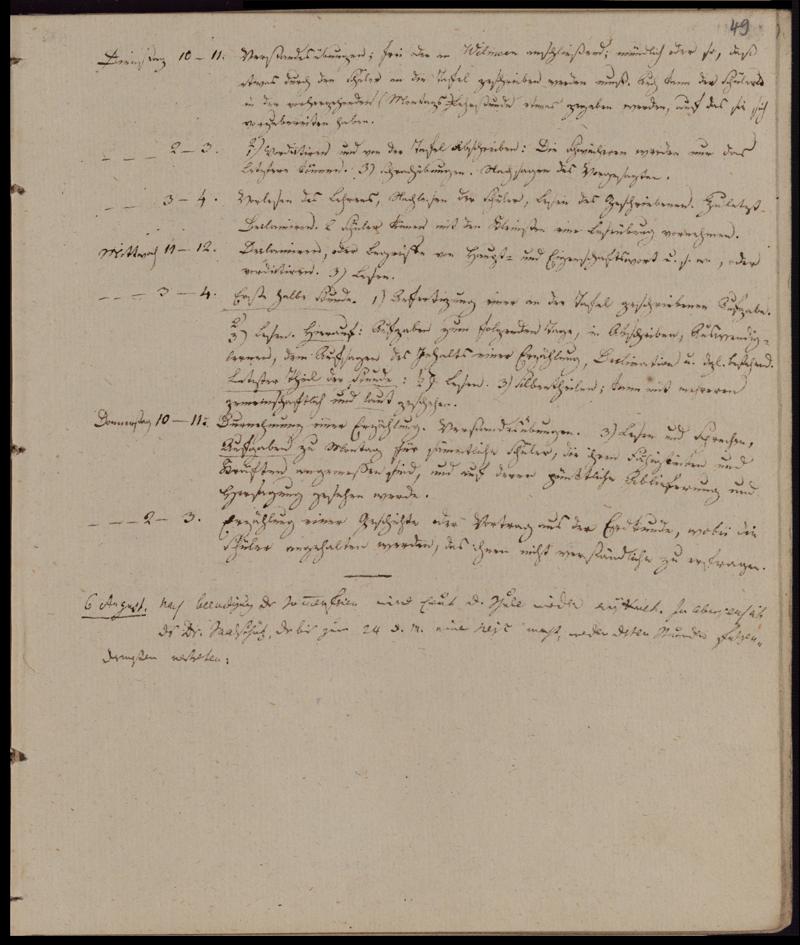 49
Dienstag 10 – 11. Verstandesübungen; frei oder an Wilmsen anschließend; mündlich oder so, daß
etwas durch den Schüler an die Tafel geschrieben werden muß. Auch kann den Schülern
in der vorhergehenden (Montags) Lehrstunde etwas gegeben werden, auf das sie sich
vorzubereiten haben.
– – – 2 – 3. 1) Vordictiren und von der Tafel Abschreiben: Die Schwächeren werden nur das
Letztere können. 3) Schreibübungen. Nachsagen des Vorgesagten.
– – – 3 – 4. Vorlesen des Lehrers, Nachlesen der Schüler, Lesen des Geschriebenen. Zuletzt
Declamiren. 2 Schüler können mit den Kleinsten eine Leseübung vornehmen.
Mittwoch 11 – 12. Declamiren, oder Begriffe von Haupt- und Eigenschaftswort u. s. w., oder
vordictiren. 3) Lesen.
– – – 3 – 4. Erste halbe Stunde. 1) Anfertigung einer an der Tafel geschriebenen Aufgabe.
2) 3) Lesen. Hierauf: Aufgaben zum folgenden Tage, in Abschreiben, Auswendig-
lernen, dem Aufsagen des Inhalts einer Erzählung, Declination u. dgl. bestehend.
Letzter Theil der Stunde: Lesen. 3) Silbentheilen; kann mit mehreren
gemeinschaftlich und laut geschehen.
Donnerstag 10 – 11. Durchnehmung einer Erzählung. Verstandesübungen. 3) Lesen und Schreiben,
Aufgaben zu Montag für sämmtliche Schüler, die ihren Fähigkeiten und
Kräften angemessen sind, und auf deren pünktliche Ablieferung und
Hersagung gesehen werde.
– – – 2 – 3. Erzählung einer Geschichte oder Vortrag aus der Erdkunde, wobei die
Schüler angehalten werden, das ihnen nicht verständliche zu erfragen.
6 August. Nach Beendigung der Sommerferien wird heut d. Schule wieder eröffnet. In Abwesenheit
des Dr. Saalschütz, der bis zum 24 d. M. eine Reise macht, werden dessen Stunden folgen-
dermaßen vertreten: